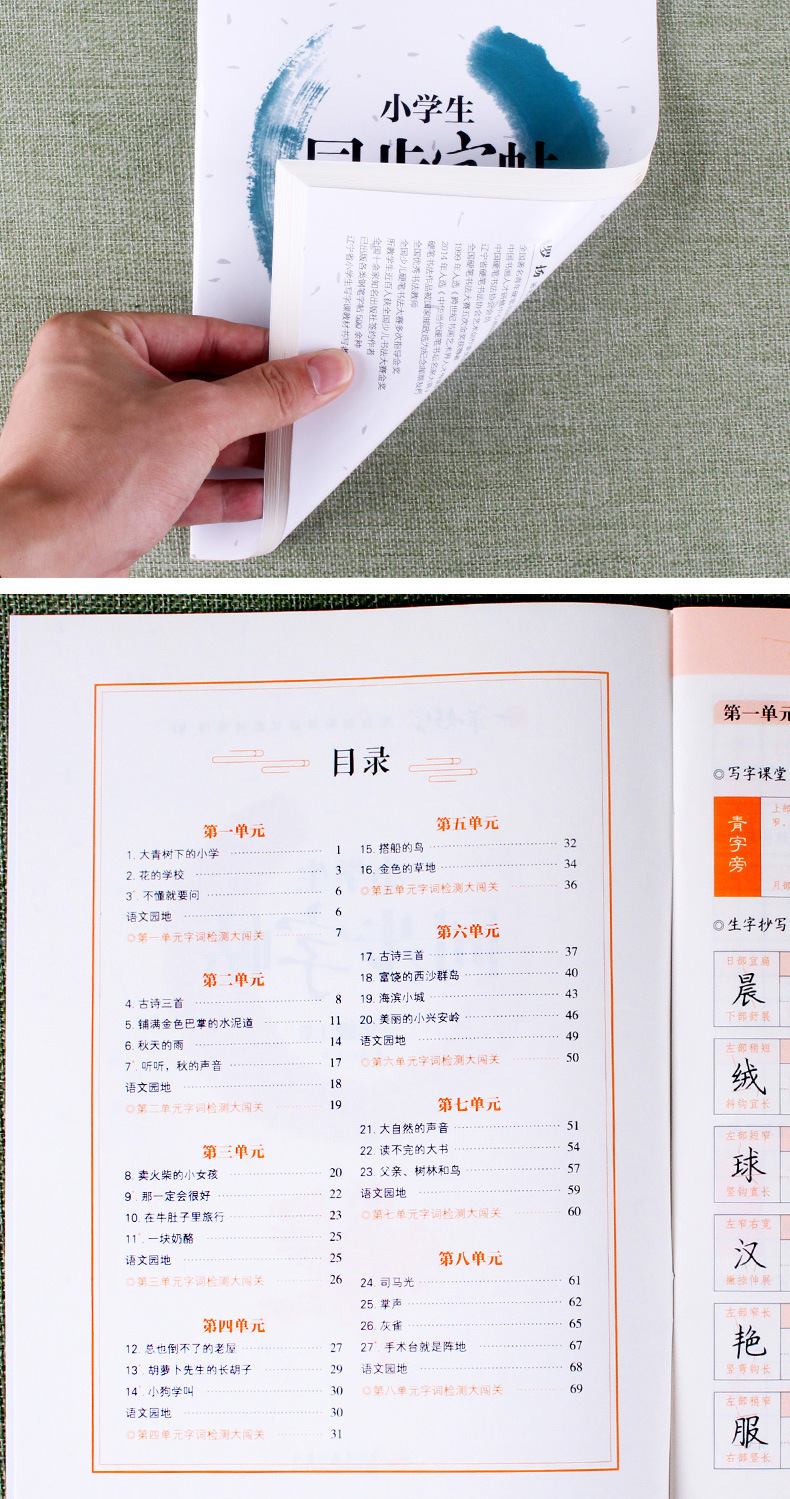 小学生
同步字帖
全国优秀书法教师
全国少儿硬笔书法大赛多次指导金奖
所教学生近百人获全国少儿书法大赛金奖
全国十余家知名出版社签约作者
已出版各类钢笔字帖 500 余种
目录
第一单元
1. 大青树下的小学 1
2. 花的学校 3
3*. 不懂就要问 6
语文园地 6
◎第一单元字词检测大闯关 7
第二单元
4. 古诗三首 8
5. 铺满金色巴掌的水泥道 11
6. 秋天的雨 14
7*. 听听，秋的声音 17
语文园地 18
◎第二单元字词检测大闯关 19
第三单元
8. 卖火柴的小女孩 20
9*. 那一定会很好 22
10. 在牛肚子里旅行 23
11*. 一块奶酪 25
语文园地 25
◎第三单元字词检测大闯关 26
第四单元
12. 总也倒不了的老屋 27
13*. 胡萝卜先生的长胡子 29
14*. 小狗学叫 30
语文园地 30
◎第四单元字词检测大闯关 31
第五单元
15. 搭船的鸟 32
16. 金色的草地 34
◎第五单元字词检测大闯关 36
第六单元
17. 古诗三首 37
18. 富饶的西沙群岛 40
19. 海滨小城 43
20. 美丽的小兴安岭 46
语文园地 49
◎第六单元字词检测大闯关 50
第七单元
21. 大自然的声音 51
22. 读不完的大书 54
23. 父亲、树林和鸟 57
语文园地 59
◎第七单元字词检测大闯关 60
第八单元
24. 司马光 61
25. 掌声 62
26. 灰雀 65
27*. 手术台就是阵地 67
语文园地 68
◎第八单元字词检测大闯关 69
第一单元
◎写字课堂
上部
窄，
青字旁
月部
◎生字抄写
日部宜扁
晨
下部舒展
左部稍短
绒
斜钩宜长
左部短窄
球
竖钩直长
左窄右宽
汉
撇捺伸展
左部窄长
艳
竖弯钩长
左部稍窄
服
右部竖长